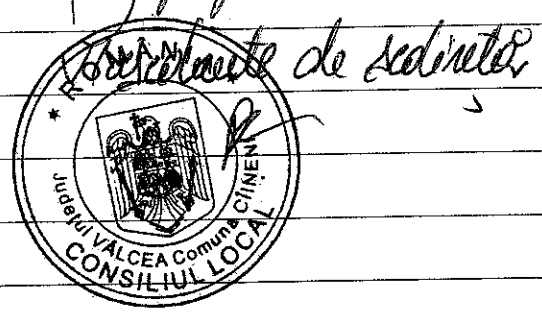 Președinte de ședință,
* ROMÂNIA *
Județul VÂLCEA Comuna CÎINENI
CONSILIUL LOCAL